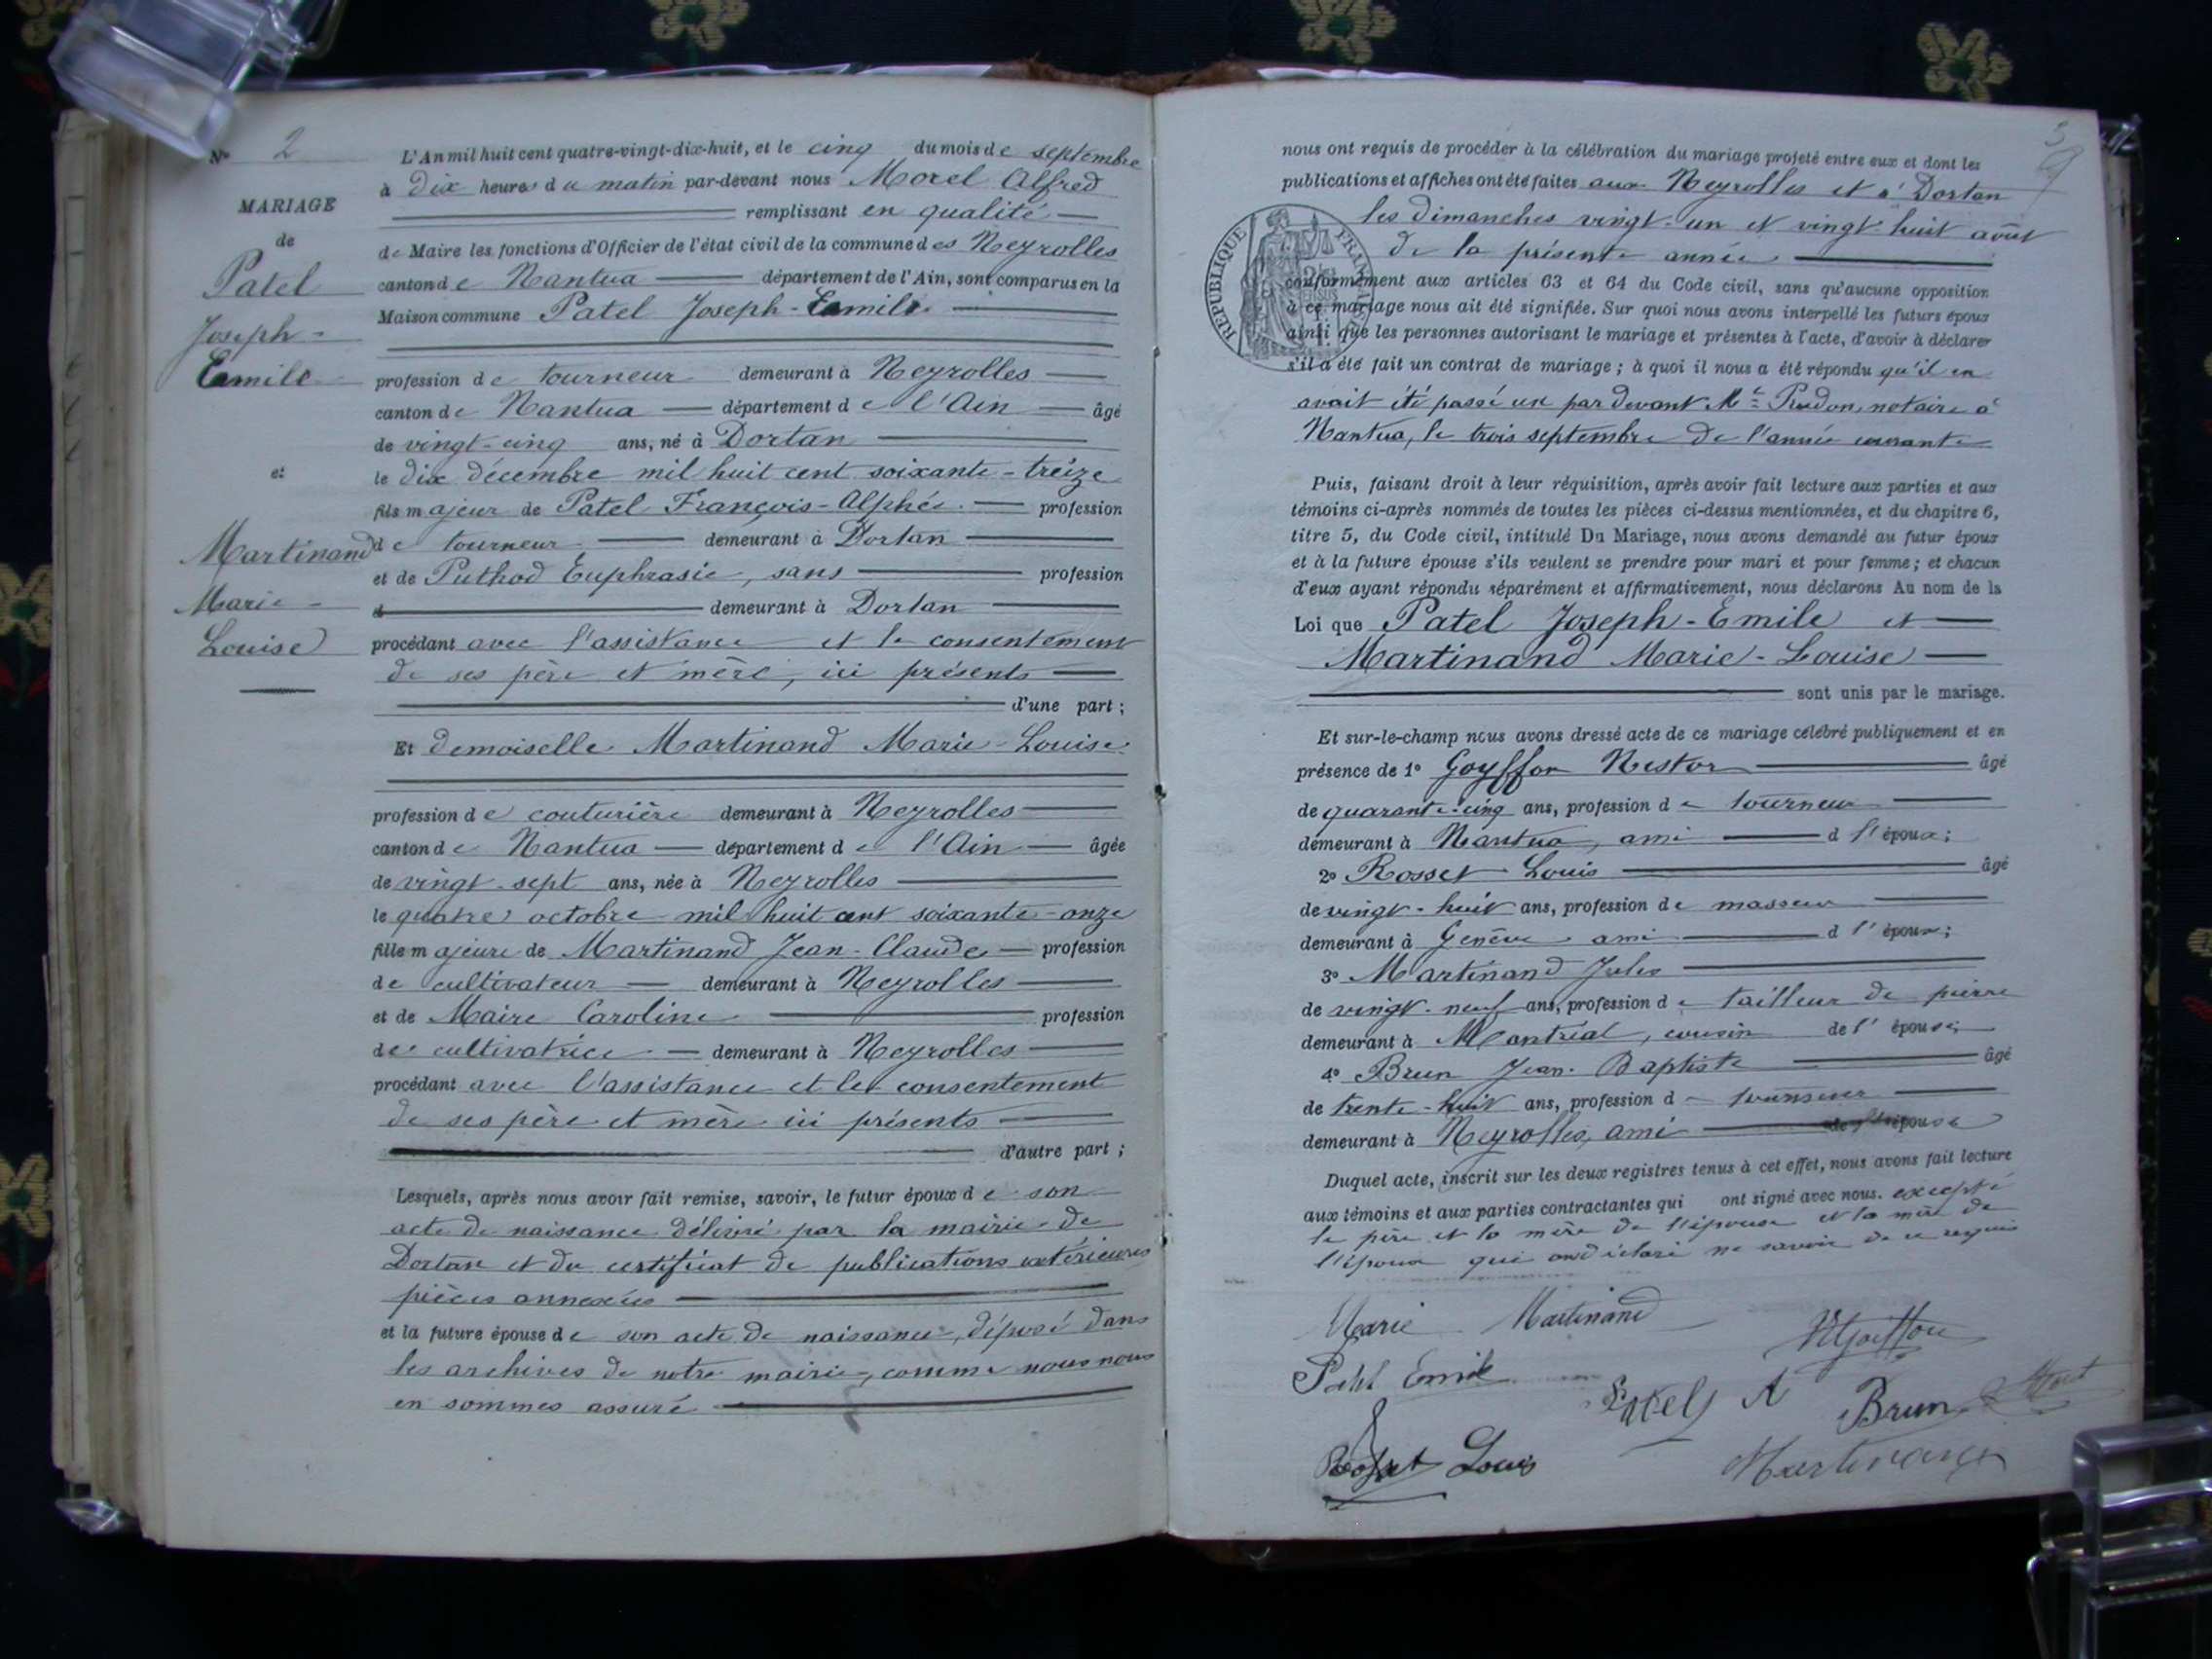 N° 2
MARIAGE
de
Patel
Joseph-
Emile
et
Martinand
Marie-
Louise
L'An mil huit cent quatre-vingt-dix-huit, et le cinq du mois de septembre
à dix heures du matin par-devant nous Morel Alfred
remplissant en qualité
de Maire les fonctions d'Officier de l'état civil de la commune des Neyrolles
canton de Nantua département de l'Ain, sont comparus en la
Maison commune Patel Joseph-Emile
profession de tourneur demeurant à Neyrolles
canton de Nantua département de l'Ain âgé
de vingt-cinq ans, né à Dortan
le dix décembre mil huit cent soixante-treize
fils majeur de Patel François-Alphée profession
de tourneur demeurant à Dortan
et de Puthod Euphrasie, sans profession
d demeurant à Dortan
procédant avec l'assistance et le consentement
de ses père et mère, ici présents
d'une part ;
Et demoiselle Martinand Marie-Louise
profession de couturière demeurant à Neyrolles
canton de Nantua département de l'Ain âgée
de vingt-sept ans, née à Neyrolles
le quatre octobre mil huit cent soixante-onze
fille majeure de Martinand Jean-Claude profession
de cultivateur demeurant à Neyrolles
et de Maire Caroline profession
de cultivatrice demeurant à Neyrolles
procédant avec l'assistance et le consentement
de ses père et mère ici présents
d'autre part ;
Lesquels, après nous avoir fait remise, savoir, le futur époux de son
acte de naissance délivré par la mairie de
Dortan et du certificat de publications extérieures
pièces annexées
et la future épouse de son acte de naissance, déposé dans
les archives de notre mairie, comme nous nous
en sommes assuré
5
nous ont requis de procéder à la célébration du mariage projeté entre eux et dont les
publications et affiches ont été faites aux Neyrolles et à Dortan
les dimanches vingt-un et vingt-huit août
de la présente année
RÉPUBLIQUE FRANÇAISE
conformément aux articles 63 et 64 du Code civil, sans qu'aucune opposition
à ce mariage nous ait été signifiée. Sur quoi nous avons interpellé les futurs époux
ainsi que les personnes autorisant le mariage et présentes à l'acte, d'avoir à déclarer
s'il a été fait un contrat de mariage ; à quoi il nous a été répondu qu'il en
avait été passé un par devant Me Prudon, notaire à
Nantua, le trois septembre de l'année courante
Puis, faisant droit à leur réquisition, après avoir fait lecture aux parties et aux
témoins ci-après nommés de toutes les pièces ci-dessus mentionnées, et du chapitre 6,
titre 5, du Code civil, intitulé Du Mariage, nous avons demandé au futur époux
et à la future épouse s'ils veulent se prendre pour mari et pour femme ; et chacun
d'eux ayant répondu séparément et affirmativement, nous déclarons Au nom de la
Loi que Patel Joseph-Emile et
Martinand Marie-Louise
sont unis par le mariage.
Et sur-le-champ nous avons dressé acte de ce mariage célébré publiquement et en
présence de 1° Goyffon Nestor âgé
de quarante-cinq ans, profession de tourneur
demeurant à Nantua, ami d l'époux ;
2° Rosset Louis âgé
de vingt-huit ans, profession de masseur
demeurant à Genève ami d l'époux ;
3° Martinand Jules
de vingt-neuf ans, profession de tailleur de pierre
demeurant à Montréal, cousin de l'épouse ;
4° Brun Jean-Baptiste âgé
de trente-huit ans, profession de tourneur
demeurant à Neyrolles, ami de l'épouse
Duquel acte, inscrit sur les deux registres tenus à cet effet, nous avons fait lecture
aux témoins et aux parties contractantes qui ont signé avec nous. excepté
le père et la mère de l'épouse et la mère de
l'époux qui ont déclaré ne savoir de ce requis
Marie Martinand
Patel Emile
Patel A
Brun
Rosset Louis
Martinand